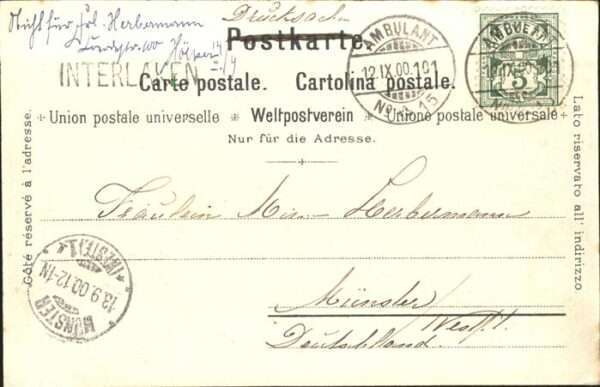 Drucksache
Nicht für Frl. Herbermann
Postkarte.
INTERLAKEN
Carte postale. Cartolina postale.
Union postale universelle Weltpostverein Unione postale universale
Nur für die Adresse.
AMBULANT
12.IX.00.-101
No. 15
AMBULANT
5
Côté réservé à l'adresse.
Lato riservato all' indirizzo.
Fräulein Herbermann
Münster
Westf.
Deutschland.
MÜNSTER
(WESTF.) 1
13.9.00.12-1N